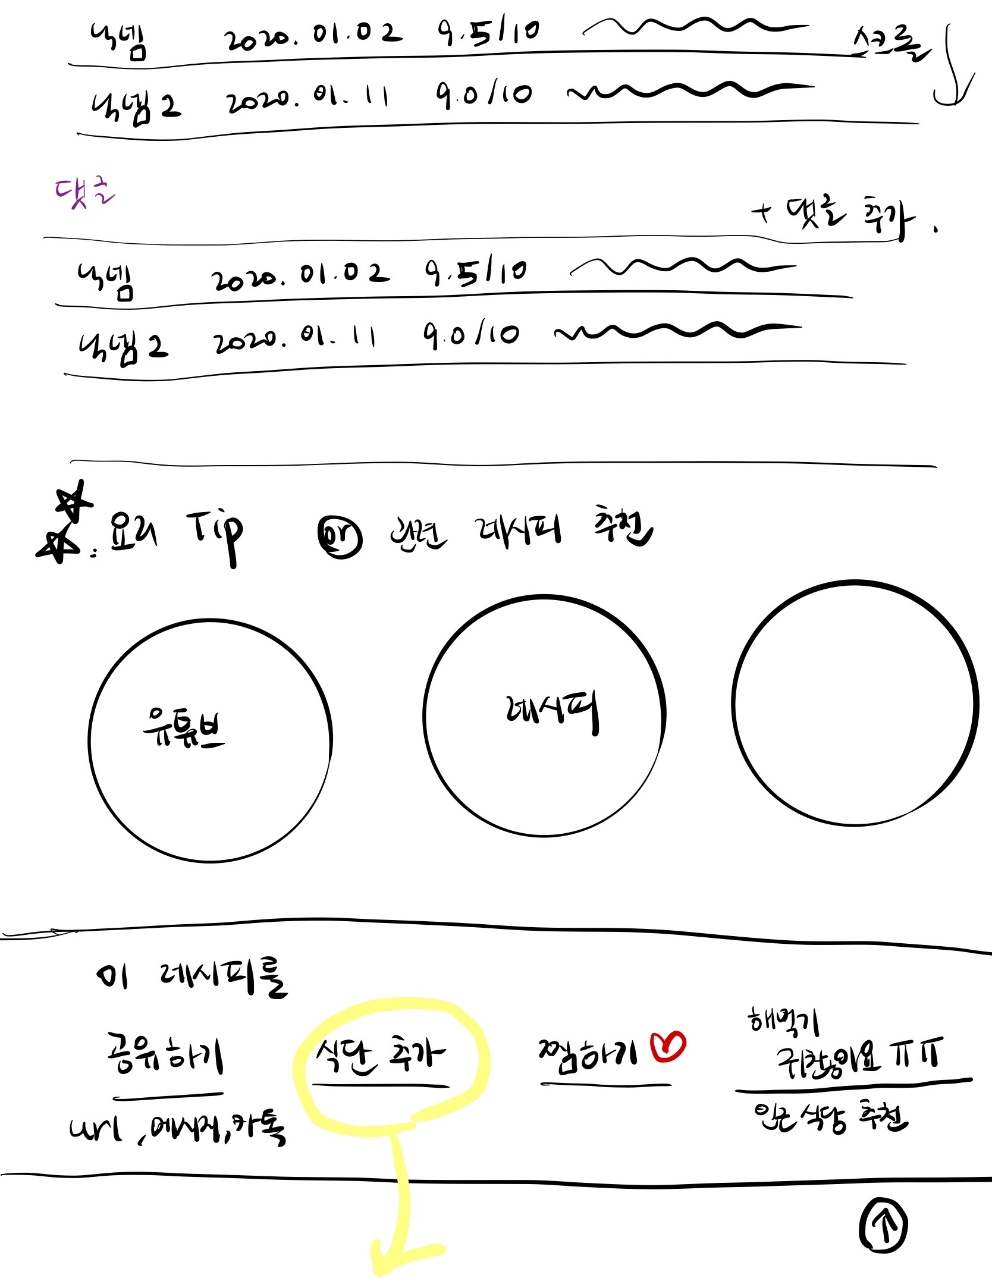 닉넴 2020.01.02 9.5/10 스크롤
닉넴2 2020.01.11 9.0/10
댓글
+ 댓글 추가.
닉넴 2020.01.02 9.5/10
닉넴2 2020.01.11 9.0/10
요리 Tip or 관련 레시피 추천
유튜브 레시피
이 레시피를
공유하기 식단 추가 찜하기 해먹기
귀찮아요 ㅠㅠ
url, 메시지, 카톡 인근 식당 추천